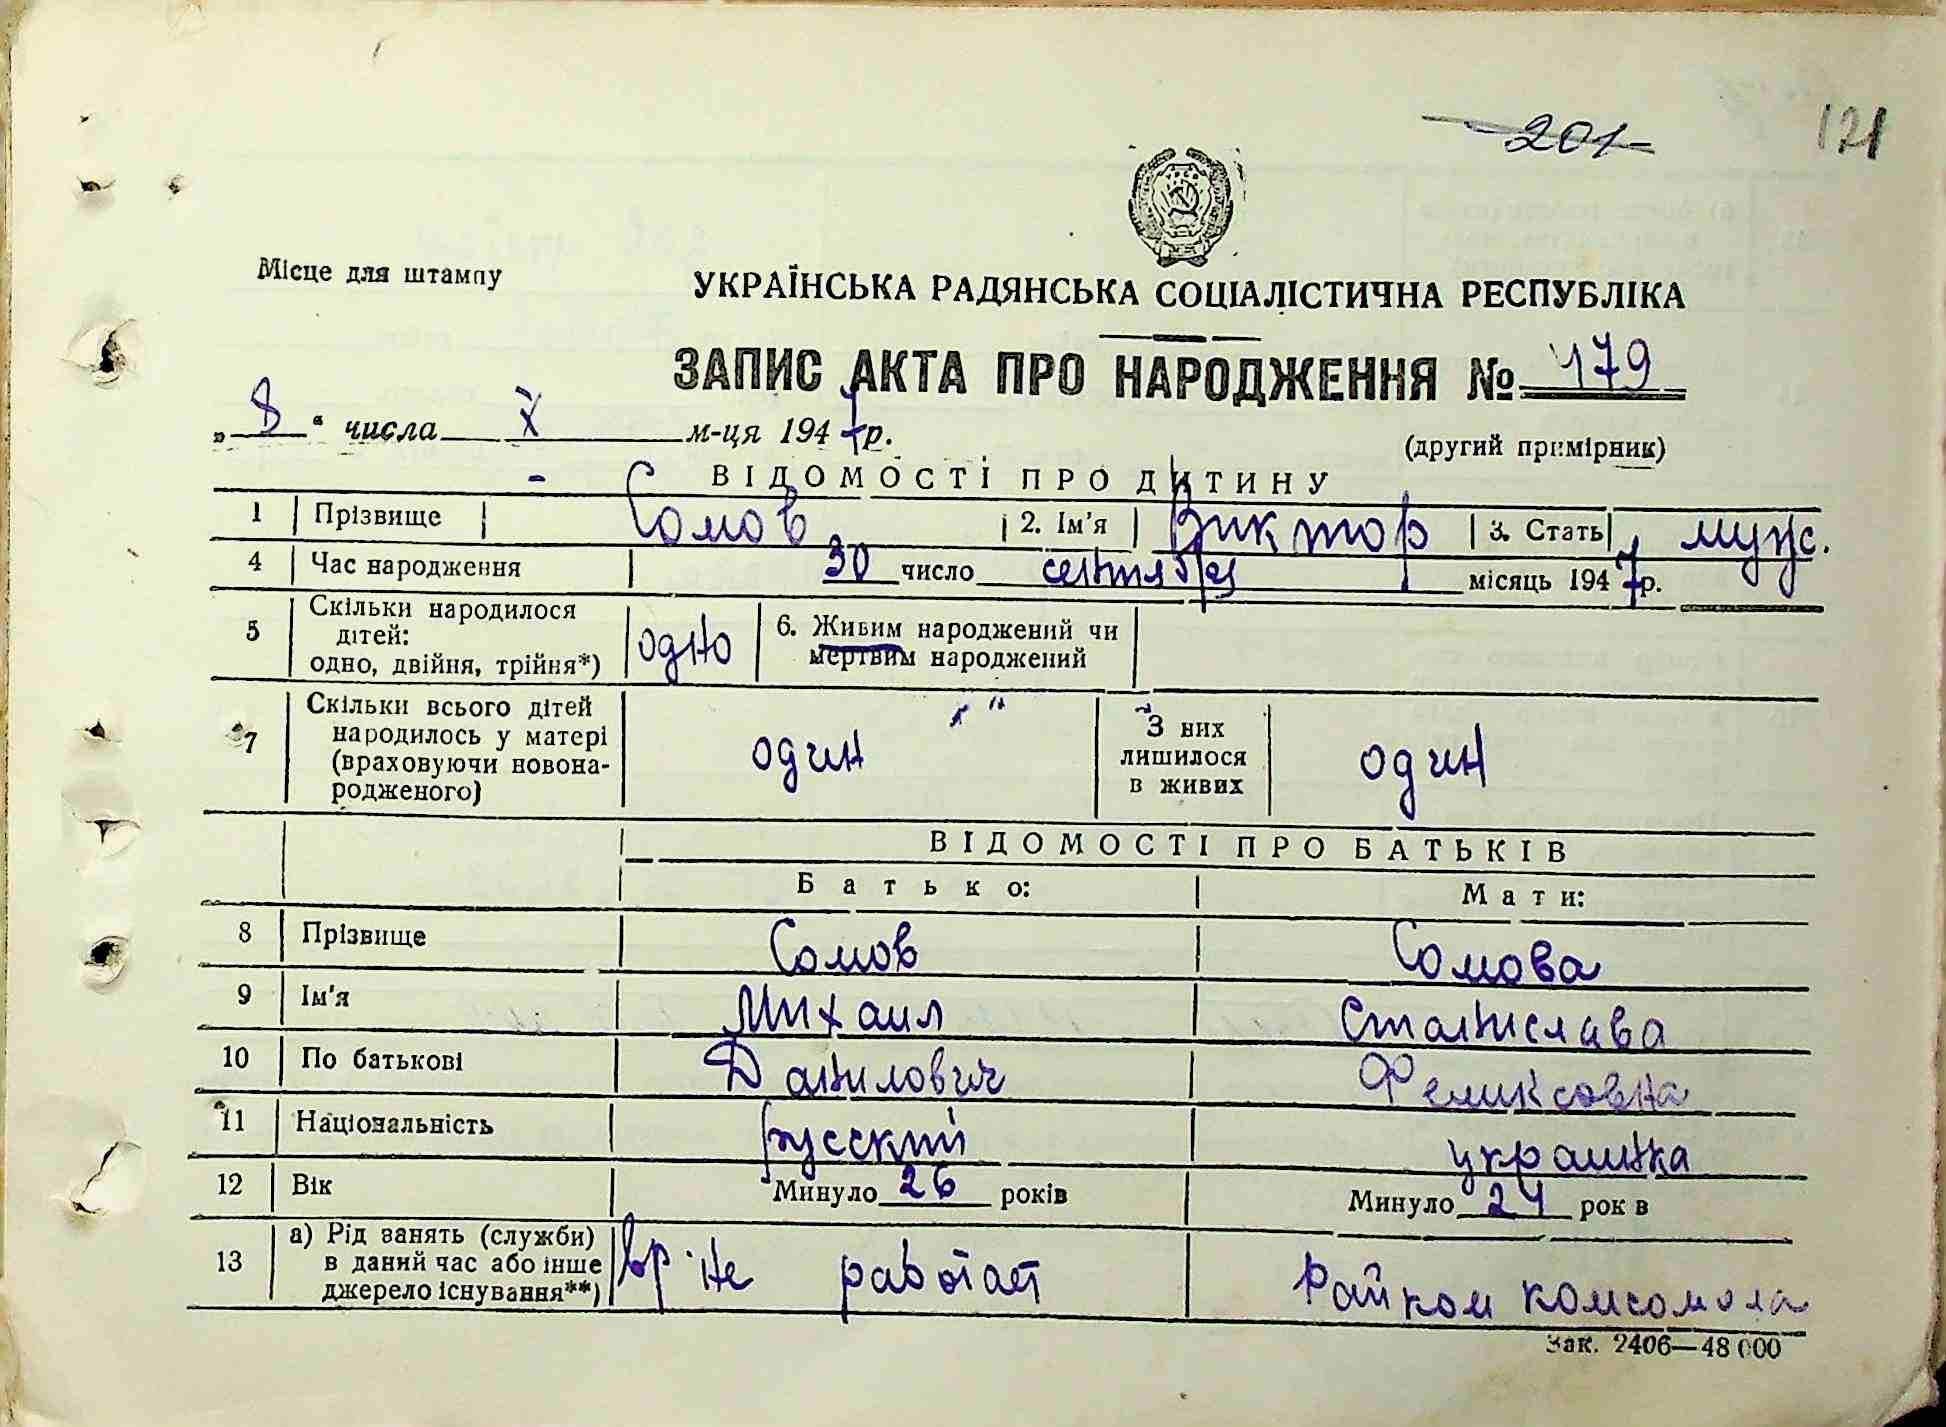 201
121
Місце для штампу
УКРАЇНСЬКА РАДЯНСЬКА СОЦІАЛІСТИЧНА РЕСПУБЛІКА
ЗАПИС АКТА ПРО НАРОДЖЕННЯ № 179
„ 8 “ числа X м-ця 1947 р.
(другий примірник)
ВІДОМОСТІ ПРО ДИТИНУ
1 Прізвище Сомов 2. Ім'я Виктор 3. Стать муж.
4 Час народження 30 число сентября місяць 1947 р.
5 Скільки народилося дітей: одно, двійня, трійня*) одно 6. Живим народжений чи мертвим народжений
7 Скільки всього дітей народилось у матері (враховуючи новонародженого) один З них лишилося в живих один
ВІДОМОСТІ ПРО БАТЬКІВ
Батько: Мати:
8 Прізвище Сомов Сомова
9 Ім'я Михаил Станислава
10 По батькові Данилович Феликсовна
11 Національність русский украинка
12 Вік Минуло 26 років Минуло 24 рок в
13 а) Рід занять (служби) в даний час або інше джерело існування**) вр не работает Райком комсомола
Зак. 2406—48 000